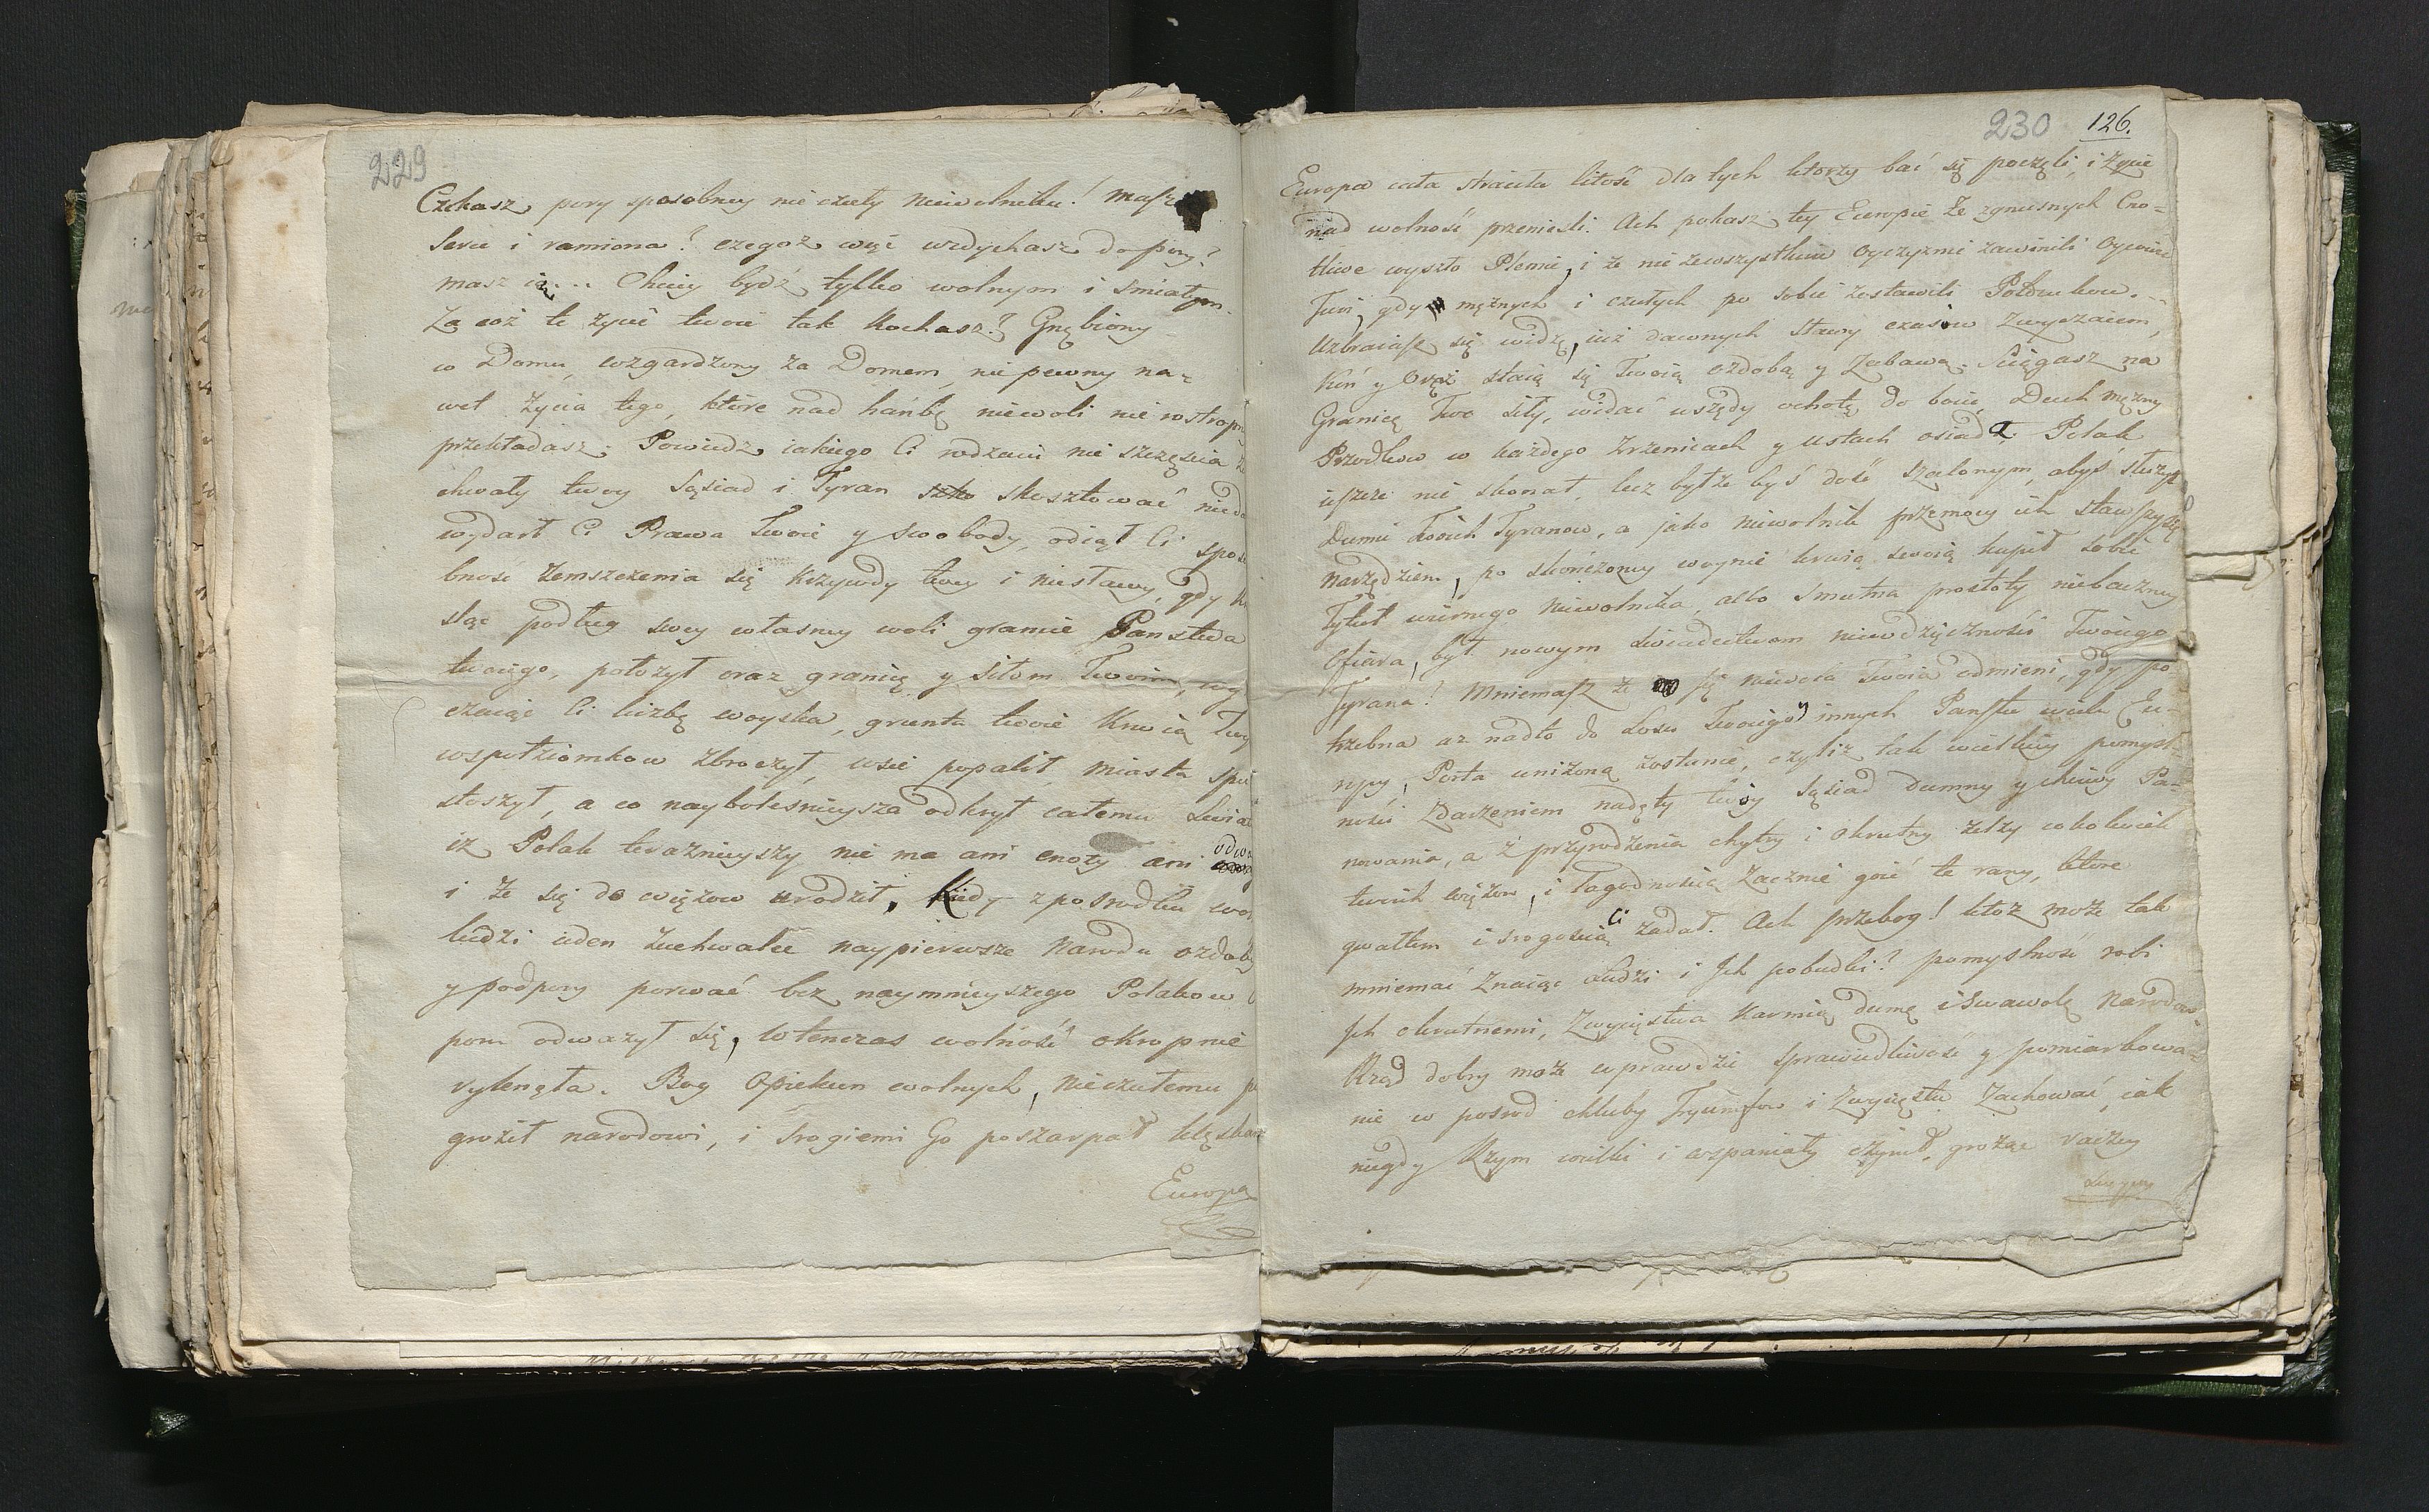 229
Czekasz pory sposobney nie czuły Niewolniku! Masz
serce i ramiona? czegoż więc wzdychasz do pory?
masz ią... Chciey bydź tylko wolnym i śmiałym.
Za coż te życie twoie tak kochasz? Gnębiony
w Domu, wzgardzony za Domem, nie pewny na=
wet życia tego, które nad hańbę niewoli nie rostropn
przekładasz; Powiedz iakiego Ci rodzaiu nie szczęścia
chwały twey Sąsiad i Tyran skosztować niedał
wydarł Ci Prawa Twoie y swobody, odiął Ci sposo
bność zemszczenia się krzywdy twey i niesławy, gdy
słąc podług swey własney woli granice Panstwa
twoiego, położył oraz granicę y siłom Twoim,
czaiąc Ci liczbę woyska, grunta twoie Krwią twy
wspułziomkow zbroczył, wsie popalił, miasta spu
stoszył, a co nayboleśnieysza odkrył całemu Świa
iż Polak teraznieyszy nie ma ani cnoty ani odwa
i że się do więzow urodził, kiedy zpośrodku wol
ludzi ieden zuchwalec naypierwsze Narodu ozdoby
y podpory porwać bez naymnieyszego Polakow
poru odważył się, Wtenczas wolność okropnie
ryknęła. Bog Opiekun wolnych, nieczułemu
groził narodowi, i srogiemi Go poszarpał klęskam
Europa
230 126.
Europa cała straciła litość dla tych ktorzy bać się poczęli, i życie
nad wolność przenieśli. Ach pokasz tey Europie że zgnusnych Cno=
tliwe wyszło Plemie, i że nie zewszystkim Oyczyznie zawinili Oycowie
Twoi, gdy mężnych i czułych po sobie zostawili Potomkow...
Uzbraiasz się widzę, iuż dawnych sławy czasow zwyczaiem,
Kóń y Oręż staią się Twoią ozdobą y Zabawą. Sciągasz na
Granicę Twe siły, widać wszędy ochotę do boiu, Duch mężny
Przodkow w każdego zrzenicach y Ustach osiadł Polak
ieszcze nie skonał, lecz byłże byś dość szalonym, abyś służył
Dumie Twoich Tyranow, a jako niewolnik przemocy ich stawszy się
Narzędziem, po skończoney woynie krwią swoią kupił sobie
Tytuł wiernego Niewolnika, albo smutna prostoty niebaczney
Ofiara, był nowym świadectwem niewdzięczności Twoiego
Tyrana! Mniemasz że się niewola Twoia odmieni, gdy po=
trzebna az nadto do Losu Twoiego y innych Panstw wielu Eu=
ropy, Porta uniżoną zostanie, czyliż tak wielkiey pomysł=
ności zdarzeniem nadęty twóy Sąsiad dumny y chciwy Pa=
nowania, a z przyrodzenia chytry i okrutny zelży cokolwiek
twoich więzow, i łagodnością zacznie goić te rany, ktore
gwałtem i srogością Ci zadał. Ach przebog! ktoż może tak
mniemać znaiąc Ludzi i Jch pobudki? pomyslność robi
Jch okrutnemi, Zwycięstwa karmią dumę i swawolę Narodow
Rząd dobry może wprawdzie sprawiedliwość y pomiarkowa=
nie w pośrod chluby Tryumfow i Zwycięstw Zachować, iak
niegdy Rzym wielki i wspaniały czynił, grożąc raczey